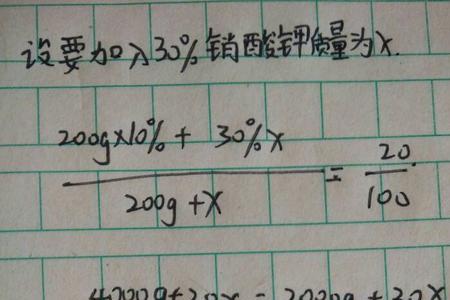 设要加入30%销酸钾质量为x.
200g×10%+ 30%x
200g+x
= 20/100